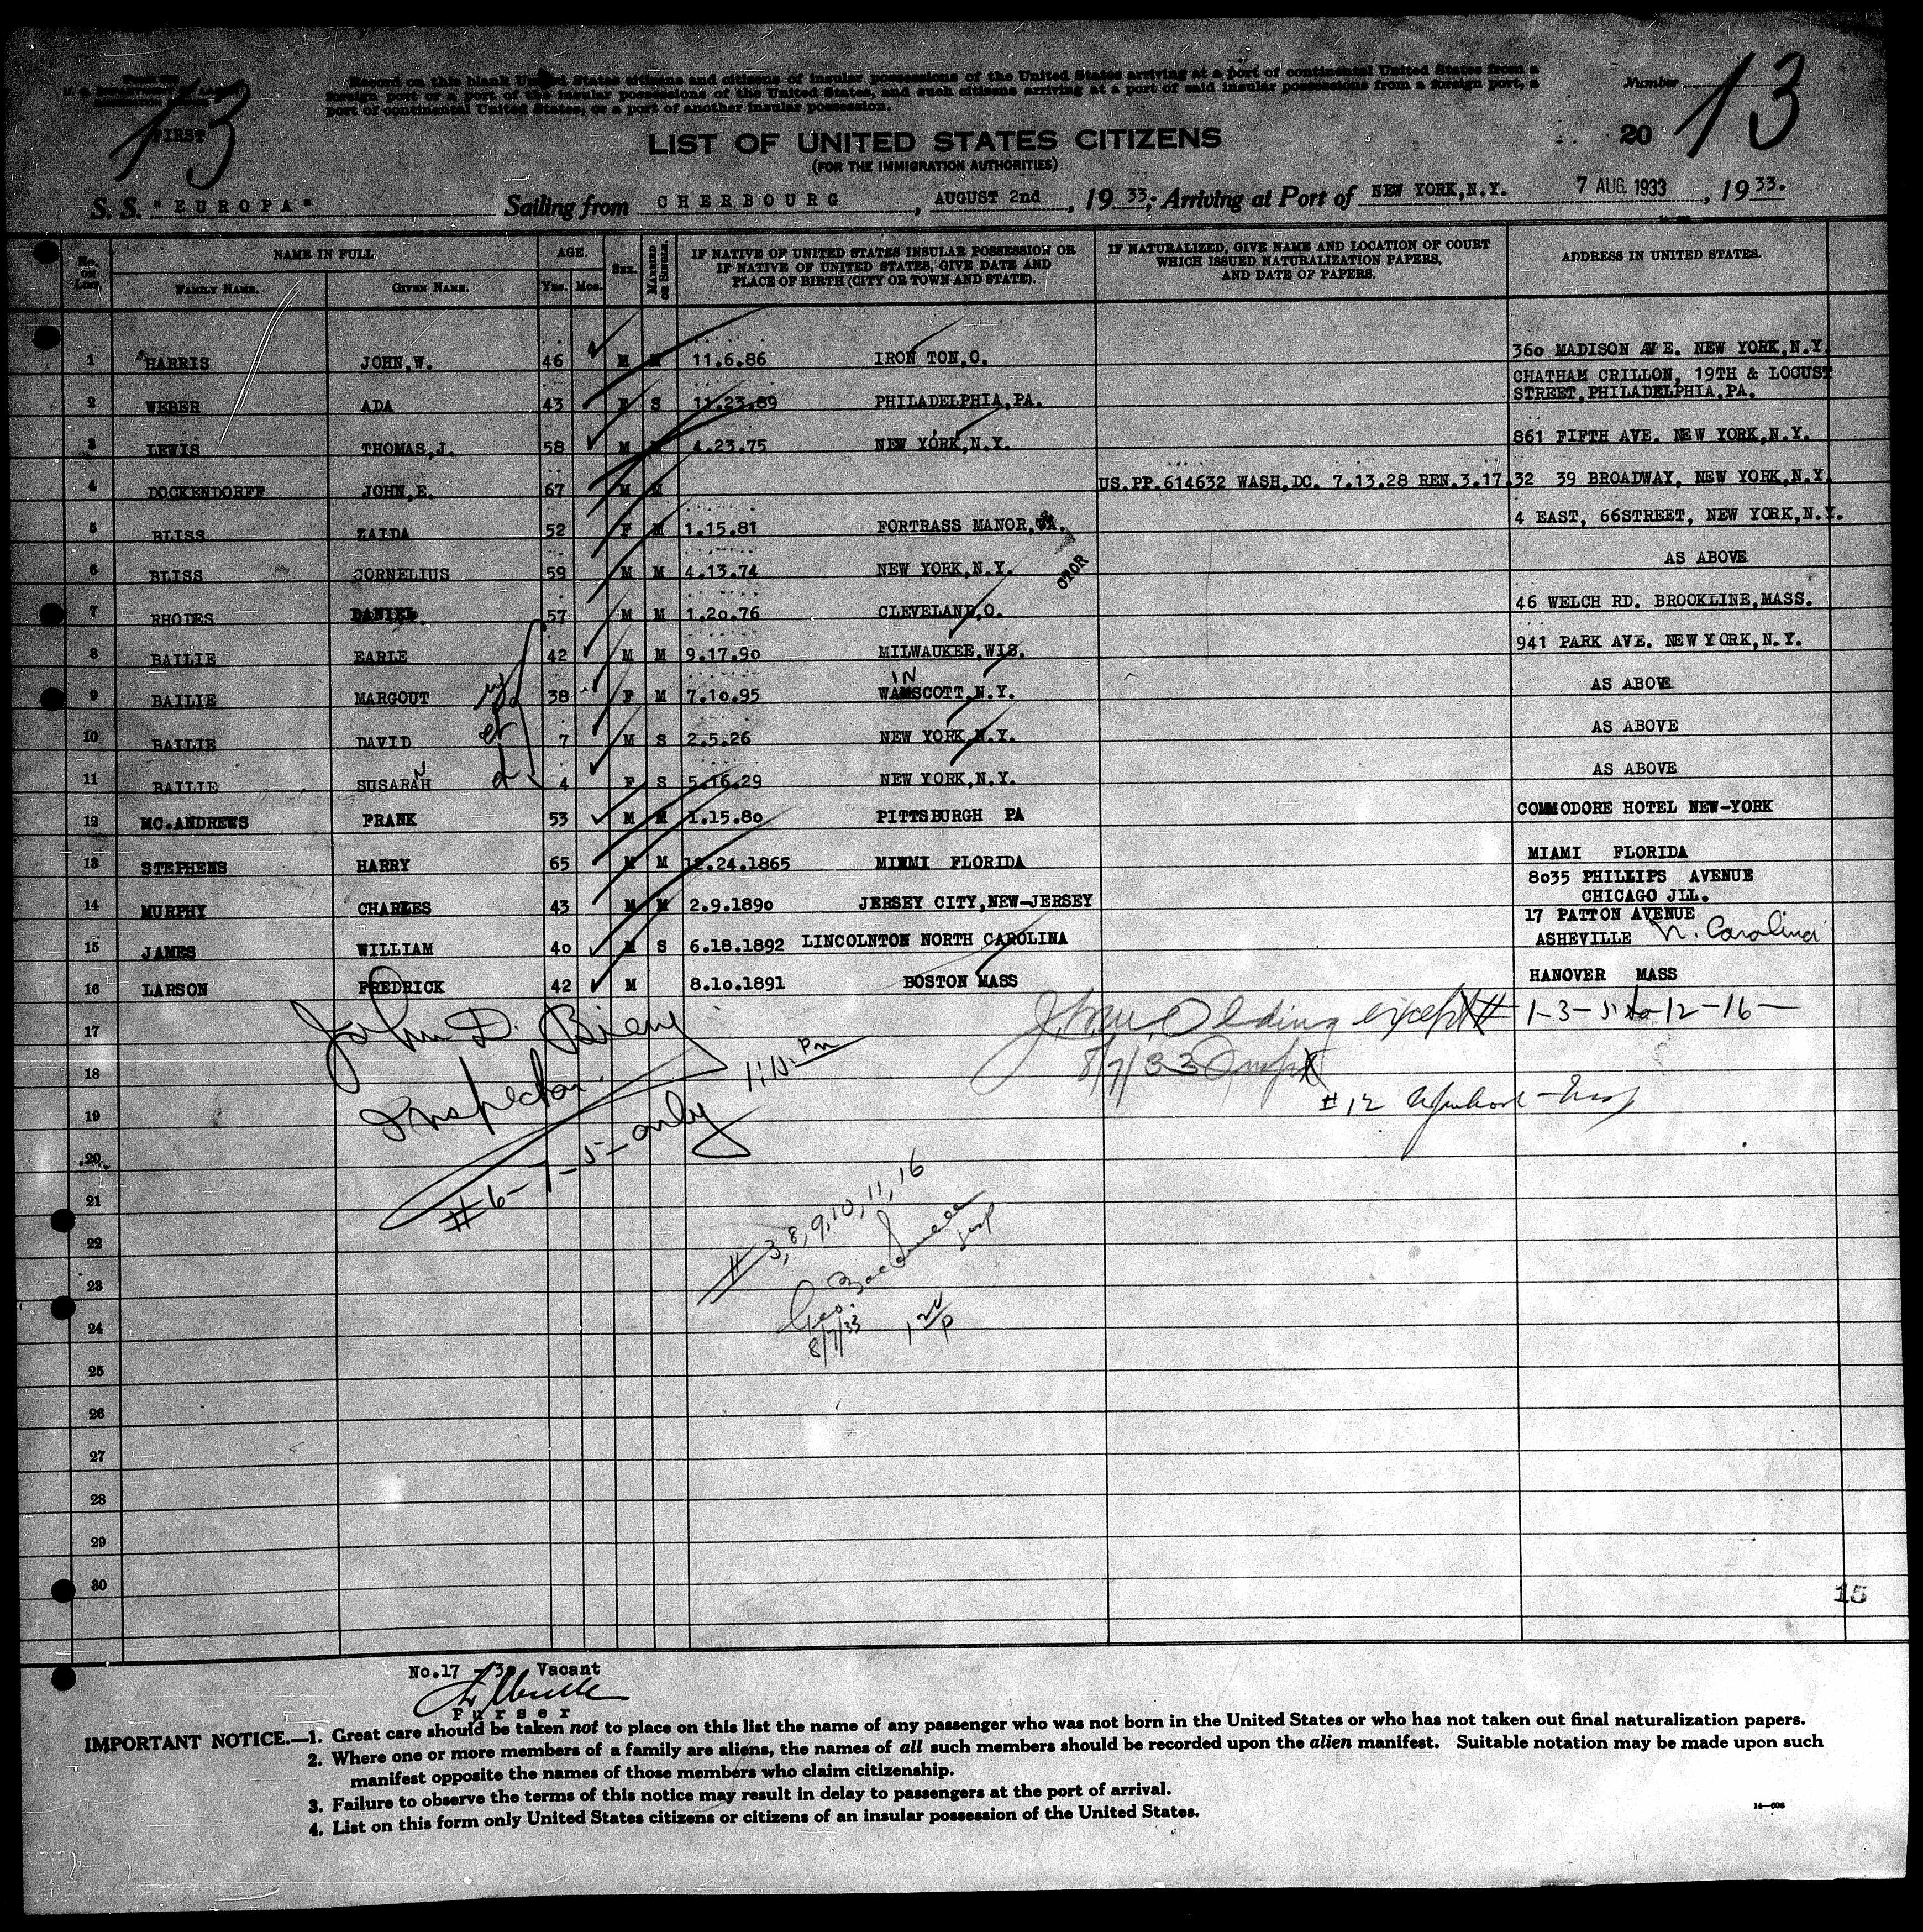 13
FIRST
Record on this blank United States citizens and citizens of insular possessions of the United States arriving at a port of continental United States from a
foreign port or a port of the insular possessions of the United States, and such citizens arriving at a port of said insular possessions from a foreign port, a
port of continental United States, or a port of another insular possession.
Number 13
20
LIST OF UNITED STATES CITIZENS
(FOR THE IMMIGRATION AUTHORITIES)
S. S. "EUROPA" Sailing from CHERBOURG, AUGUST 2nd, 19 33; Arriving at Port of NEW YORK,N.Y. 7 AUG. 1933, 19 33.
No. ON LIST. NAME IN FULL FAMILY NAME. GIVEN NAME. AGE. Yrs. Mos. SEX. MARRIED OR SINGLE. IF NATIVE OF UNITED STATES INSULAR POSSESSION OR IF NATIVE OF UNITED STATES, GIVE DATE AND PLACE OF BIRTH (CITY OR TOWN AND STATE). IF NATURALIZED, GIVE NAME AND LOCATION OF COURT WHICH ISSUED NATURALIZATION PAPERS, AND DATE OF PAPERS. ADDRESS IN UNITED STATES.
1 HARRIS JOHN,W. 46 M M 11.6.86 IRON TON,O. 360 MADISON AVE. NEW YORK,N.Y.
2 WEBER ADA 43 F S 11.23.89 PHILADELPHIA,PA. CHATHAM CRILLON, 19TH & LOCUST
STREET,PHILADELPHIA,PA.
3 LEWIS THOMAS,J. 58 M 4.23.75 NEW YORK,N.Y. 861 FIFTH AVE. NEW YORK,N.Y.
4 DOCKENDORFF JOHN,E. 67 M M US.PP.614632 WASH,DC. 7.13.28 REN.3.17.32 39 BROADWAY, NEW YORK,N.Y.
5 BLISS ZAIDA 52 F M 1.15.81 FORTRASS MANOR, 4 EAST, 66STREET, NEW YORK,N.Y.
6 BLISS CORNELIUS 59 M M 4.13.74 NEW YORK,N.Y. AS ABOVE
7 RHODES DANIEL. 57 M M 1.20.76 CLEVELAND,O. 46 WELCH RD. BROOKLINE,MASS.
8 BAILIE EARLE 42 M M 9.17.90 MILWAUKEE,WIS. 941 PARK AVE. NEW YORK,N.Y.
IN
9 BAILIE MARGOUT 38 F M 7.10.95 WAMSCOTT,N.Y. AS ABOVE
10 BAILIE DAVID 7 M S 2.5.26 NEW YORK,N.Y. AS ABOVE
11 BAILIE SUSARAH 4 F S 5.16.29 NEW YORK,N.Y. AS ABOVE
12 MC.ANDREWS FRANK 53 M M 1.15.80 PITTSBURGH PA COMMODORE HOTEL NEW-YORK
13 STEPHENS HARRY 65 M M 12.24.1865 MIMMI FLORIDA MIAMI FLORIDA
14 MURPHY CHARLES 43 M M 2.9.1890 JERSEY CITY,NEW-JERSEY 8035 PHILLIPS AVENUE
CHICAGO JLL.
15 JAMES WILLIAM 40 M S 6.18.1892 LINCOLNTON NORTH CAROLINA 17 PATTON AVENUE
ASHEVILLE N. Carolina
16 LARSON FREDRICK 42 M 8.10.1891 BOSTON MASS HANOVER MASS
17 except # 1-3-5 to 12-16-
18 8/7/33
19 John D. Inspector
#12
20 #6-7-5-only
21 # 3,8,9,10,11,16
22
23
24 Geo. 8/7/33
25
26
27
28
29
30
15
No.17 - 30 Vacant
Purser
IMPORTANT NOTICE.—1. Great care should be taken not to place on this list the name of any passenger who was not born in the United States or who has not taken out final naturalization papers.
2. Where one or more members of a family are aliens, the names of all such members should be recorded upon the alien manifest. Suitable notation may be made upon such
manifest opposite the names of those members who claim citizenship.
3. Failure to observe the terms of this notice may result in delay to passengers at the port of arrival.
4. List on this form only United States citizens or citizens of an insular possession of the United States.
14—608